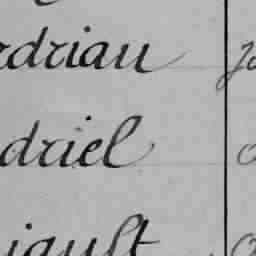 rdriau
driel
iault